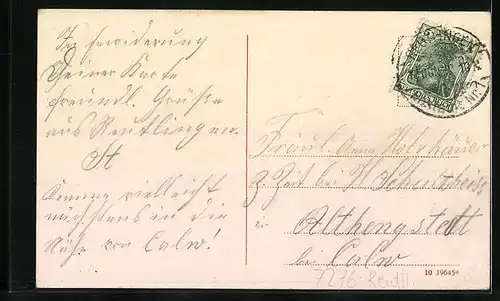 In Erwiderung
Deiner Karte
freundl. Grüße
aus Reutlingen.
St
Komme vielleicht
nächstens in die
Nähe von Calw!
Fräul. Anna Holzhäuer
z. Zeit bei H. Schultheiss
in Althengstett
bei Calw
10 19645*
7276 Reutl